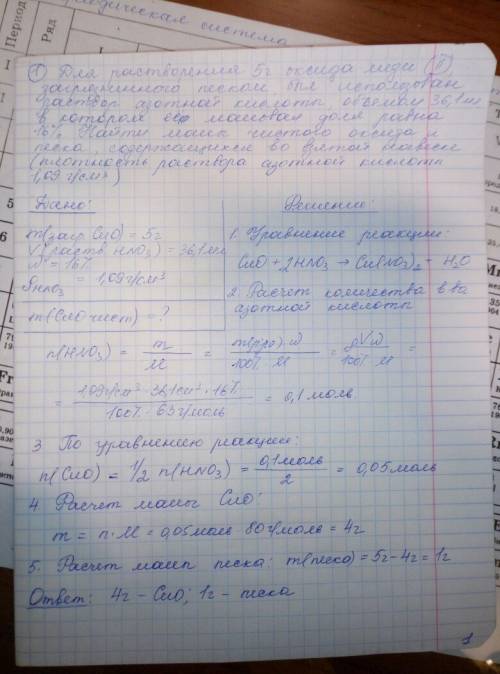 Период
Ряд
одическая система
1 Для растворения 5г оксида меди (II)
загрязнённого песком, был использован
раствор азотной кислоты, объемом 36,1мл
в котором её массовая доля равна
16%. Найти массы чистого оксида и
песка, содержащихся во взятой навеске
(плотность раствора азотной кислоты
1,09 г/см³)
Дано:
Решение:
m(загр CuO) = 5г
V(раств HNO₃) = 36,1мл
W = 16%
ρHNO₃ = 1,09 г/см³
m(CuO чист) = ?
1. Уравнение реакции:
CuO + 2HNO₃ → Cu(NO₃)₂ + H₂O
2. Расчет количества в-ва
азотной кислоты
n(HNO₃) = m/M = m(р-ра)·w/100%·M = ρVw/100%·M =
= 1,09г/см³·36,1см³·16%/100%·63г/моль = 0,1 моль
3 По уравнению реакции:
n(CuO) = 1/2 n(HNO₃) = 0,1моль/2 = 0,05моль
4. Расчет массы CuO:
m = n·M = 0,05моль·80г/моль = 4г
5. Расчет массы песка: m(песка) = 5г-4г = 1г
Ответ: 4г - CuO; 1г - песка
1